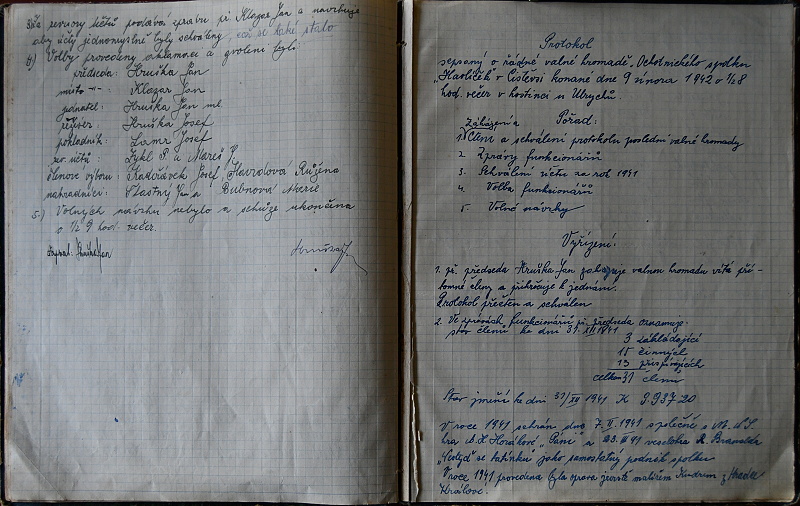 revisory účtů podává zprávu př. Klazar Jan a navrhuje
aby účty jednomyslně byly schváleny, což se také stalo
4) Volby provedeny aklamací a zvoleni byli:
předseda: Hruška Jan
místo -"- Klazar Jan
jednatel: Hruška Jan ml.
režiser: Hruška Josef
pokladník: Josef
rev. účtů: P. a Mareš J.
členové výboru: Josef, Havrdová Růžena
náhradníci: Šťastný Jan a Bubnová Marie
5.) Volných návrhů nebylo a schůze ukončena
o ½ 9 hod. večer.
Protokol
sepsaný o řádné valné hromadě „Ochotnického spolku
„Havlíček" v konané dne 9 února 1942 v ½8
hod. večer v hostinci u Ulrychů.
Zahájení a Pořad:
1. Čtení a schválení protokolu poslední valné hromady
2. Zprávy funkcionářů
3. Schválení účtu za rok 1941
4. Volba funkcionářů
5. Volné návrhy
Vyřízení:
1. př. předseda Hruška Jan zahajuje valnou hromadu vítá pří-
tomné členy a přikročuje k jednání.
Protokol přečten a schválen
2. Ve zprávách funkcionářů př. předseda oznamuje.
stav členů ke dni 31. XII. 1941
3 zakládající
15 činných
13 přispívajících
celkem 31 členů
Stav jmění ke dni 31/XII 1941 K 3.937 20
V roce 1941 sehrán dne 7. II. 1941 společně s
hra A. X. Horákové „Páni" a 23. III 41 veselohra R. Branalda
se tatínku" jako samostatný podnik spolku
V roce 1941 provedena byla oprava jeviště malířem z Hradce
Králové.